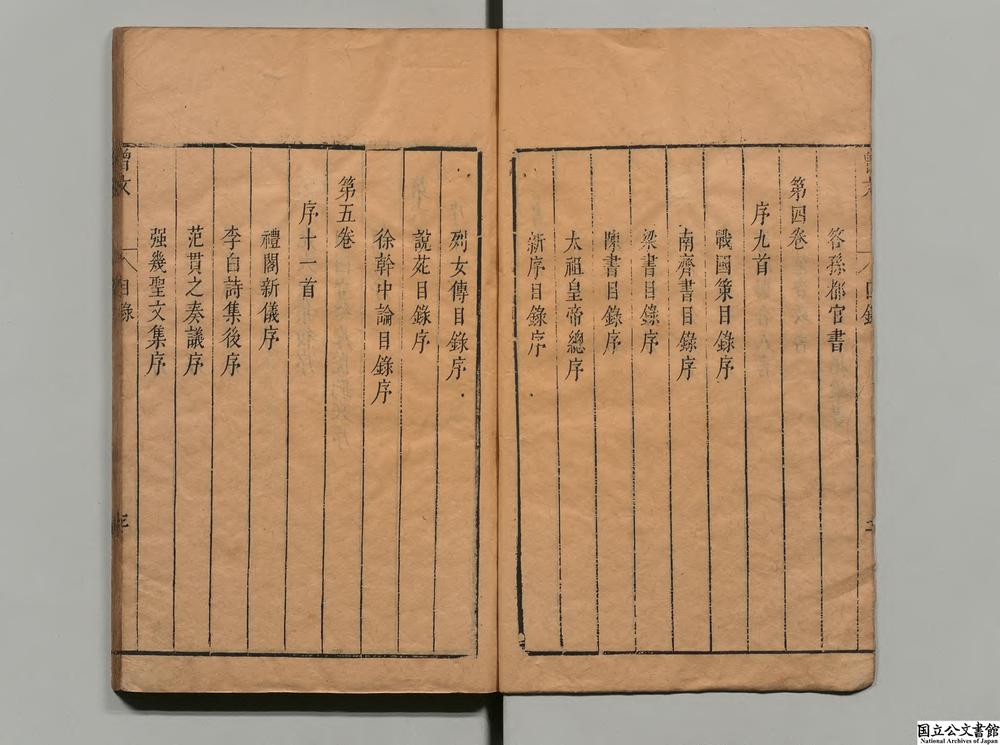 答孫都官書
第四卷
序九首
戰國策目錄序
南齊書目錄序
梁書目錄序
陳書目錄序
太祖皇帝總序
新序目錄序
列女傳目錄序
說苑目錄序
徐幹中論目錄序
第五卷
序十一首
禮閣新儀序
李白詩集後序
范貫之奏議序
强幾聖文集序
曾文
目錄
国立公文書館
National Archives of Japan